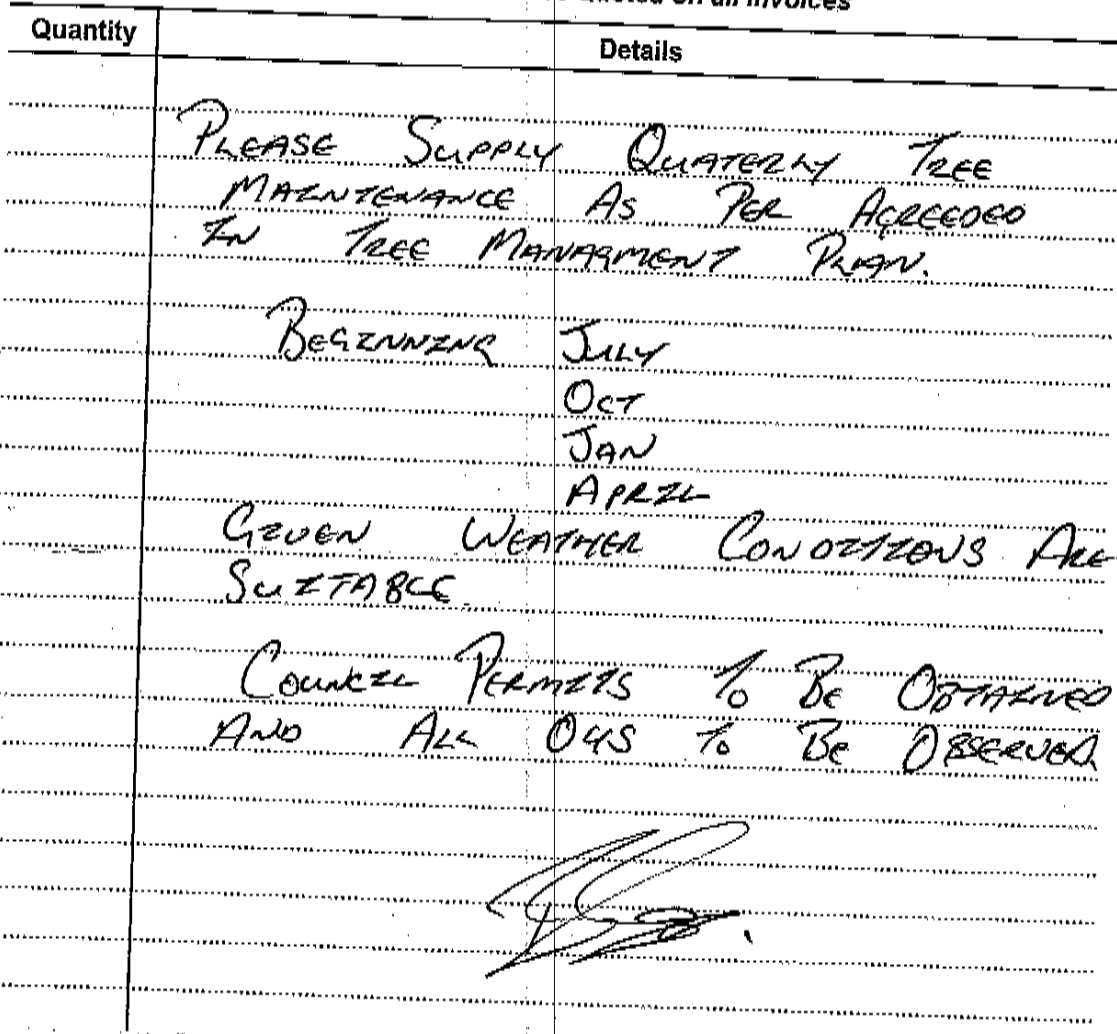 quoted on all invoices
Quantity Details
PLEASE SUPPLY QUATERLY TREE
MAINTENANCE AS PER AGREEDED
IN TREE MANAGMENT PLAN.
BEGINNING JULY
OCT
JAN
APRIL
GIVEN WEATHER CONDITIONS ARE
SUITABLE
COUNCIL PERMITS TO BE OBTAINED
AND ALL OHS TO BE OBSERVED.